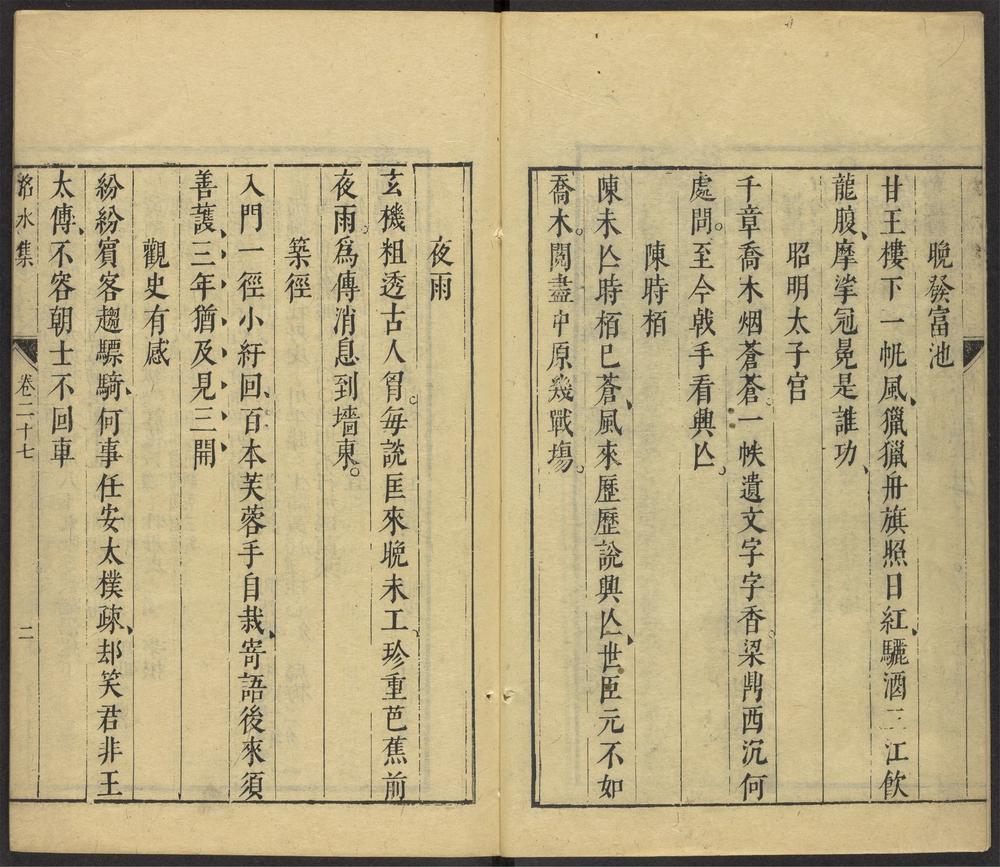 晚發富池
甘王樓下一帆風獵獵舟旗照日紅驪酒三江飲
龍腹摩挲冠冕是誰功
昭明太子宮
千章喬木烟蒼蒼一帙遺文字字香梁鼎西沉何
處問至今戟手看興亾
陳時栢
陳未亾時栢已蒼風來歷歷說興亾世臣元不如
喬木閱盡中原幾戰塲
夜雨
玄機粗透古人胷每說匡來晚未工珍重芭蕉前
夜雨爲傳消息到墻東
築徑
入門一徑小紆回百本芙蓉手自栽寄語後來須
善護三年猶及見三開
觀史有感
紛紛賓客趨驃騎何事任安太樸疎却笑君非王
太傅不容朝士不回車
洺水集 卷二十七 二